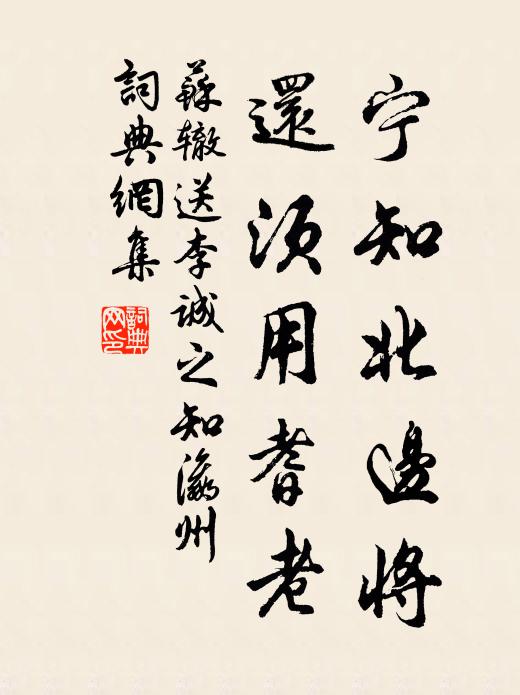 宁知北邊將
還須用耆老
蘇辙送李诚之知瀛州
詞典網集
詞典
网印